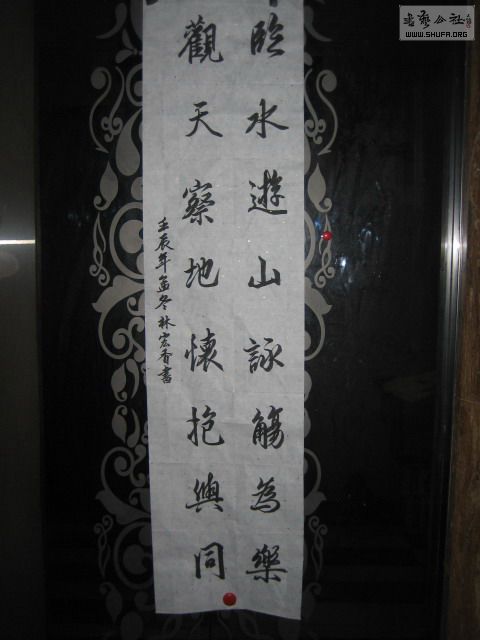 臨水遊山詠觴為樂
觀天察地懷抱興同
壬辰年孟冬林宏香書
書藝公社
WWW.SHUFA.ORG